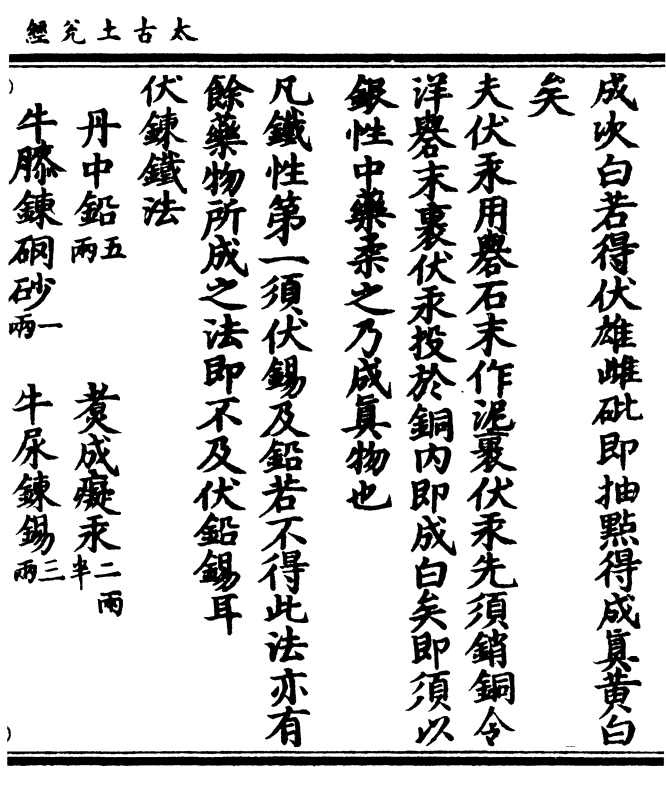 太古土兊經
成次白若得伏雄雌砒即抽點得成真黃白
矣
夫伏汞用礜石末作泥裹伏汞先須銷銅令
洋礜末裹伏汞投於銅內即成白矣即須以
銀性中藥柔之乃成真物也
凡鐵性第一須伏錫及鉛若不得此法亦有
餘藥物所成之法即不及伏鉛錫耳
伏鍊鐵法
丹中鉛五兩 煑成癡汞二兩半
牛膝鍊硇砂一兩 牛尿鍊錫三兩